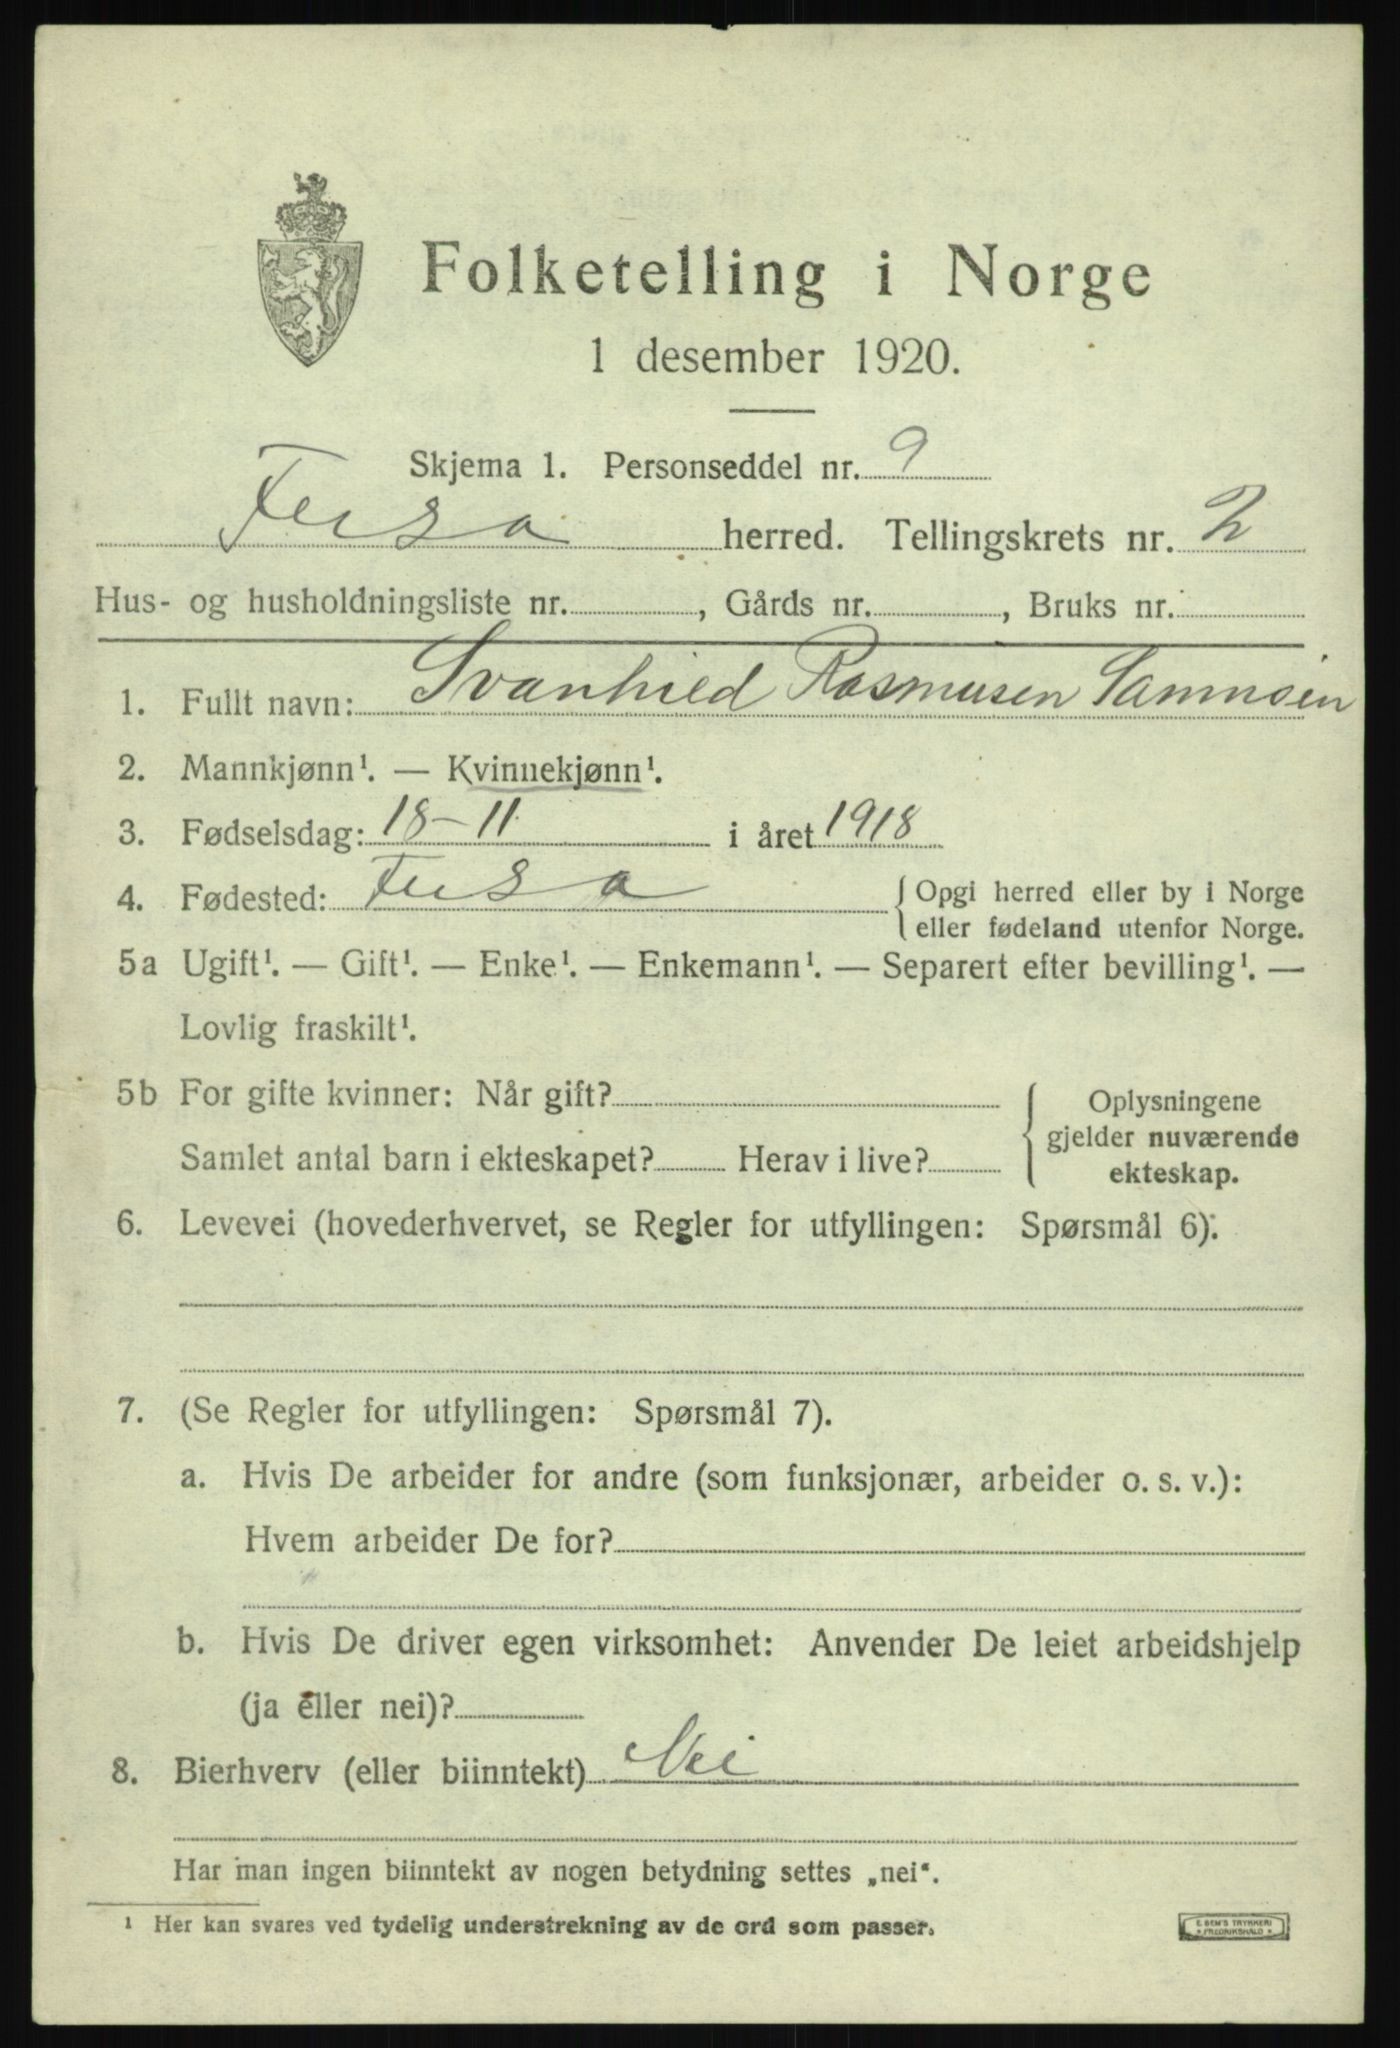 Folketelling i Norge
1 desember 1920.
Skjema 1. Personseddel nr. 9
Fusa herred. Tellingskrets nr. 2
Hus- og husholdningsliste nr. , Gårds nr. , Bruks nr.
1. Fullt navn: Svanhild Rasmusen Samnøen
2. Mannkjønn¹. — Kvinnekjønn¹.
3. Fødselsdag: 18-11 i året 1918
4. Fødested: Fusa { Opgi herred eller by i Norge
eller fødeland utenfor Norge.
5a Ugift¹. — Gift¹. — Enke¹. — Enkemann¹. — Separert efter bevilling¹. —
Lovlig fraskilt¹.
5b For gifte kvinner: Når gift? { Oplysningene
gjelder nuværende
Samlet antal barn i ekteskapet? Herav i live?
ekteskap.
6. Levevei (hovederhvervet, se Regler for utfyllingen: Spørsmål 6):
7. (Se Regler for utfyllingen: Spørsmål 7).
a. Hvis De arbeider for andre (som funksjonær, arbeider o. s. v.):
Hvem arbeider De for?
b. Hvis De driver egen virksomhet: Anvender De leiet arbeidshjelp
(ja eller nei)?
8. Bierhverv (eller biinntekt) Nei
Har man ingen biinntekt av nogen betydning settes „nei“.
¹ Her kan svares ved tydelig understrekning av de ord som passer.
E. SEM'S TRYKKERI
FREDRIKSHALD